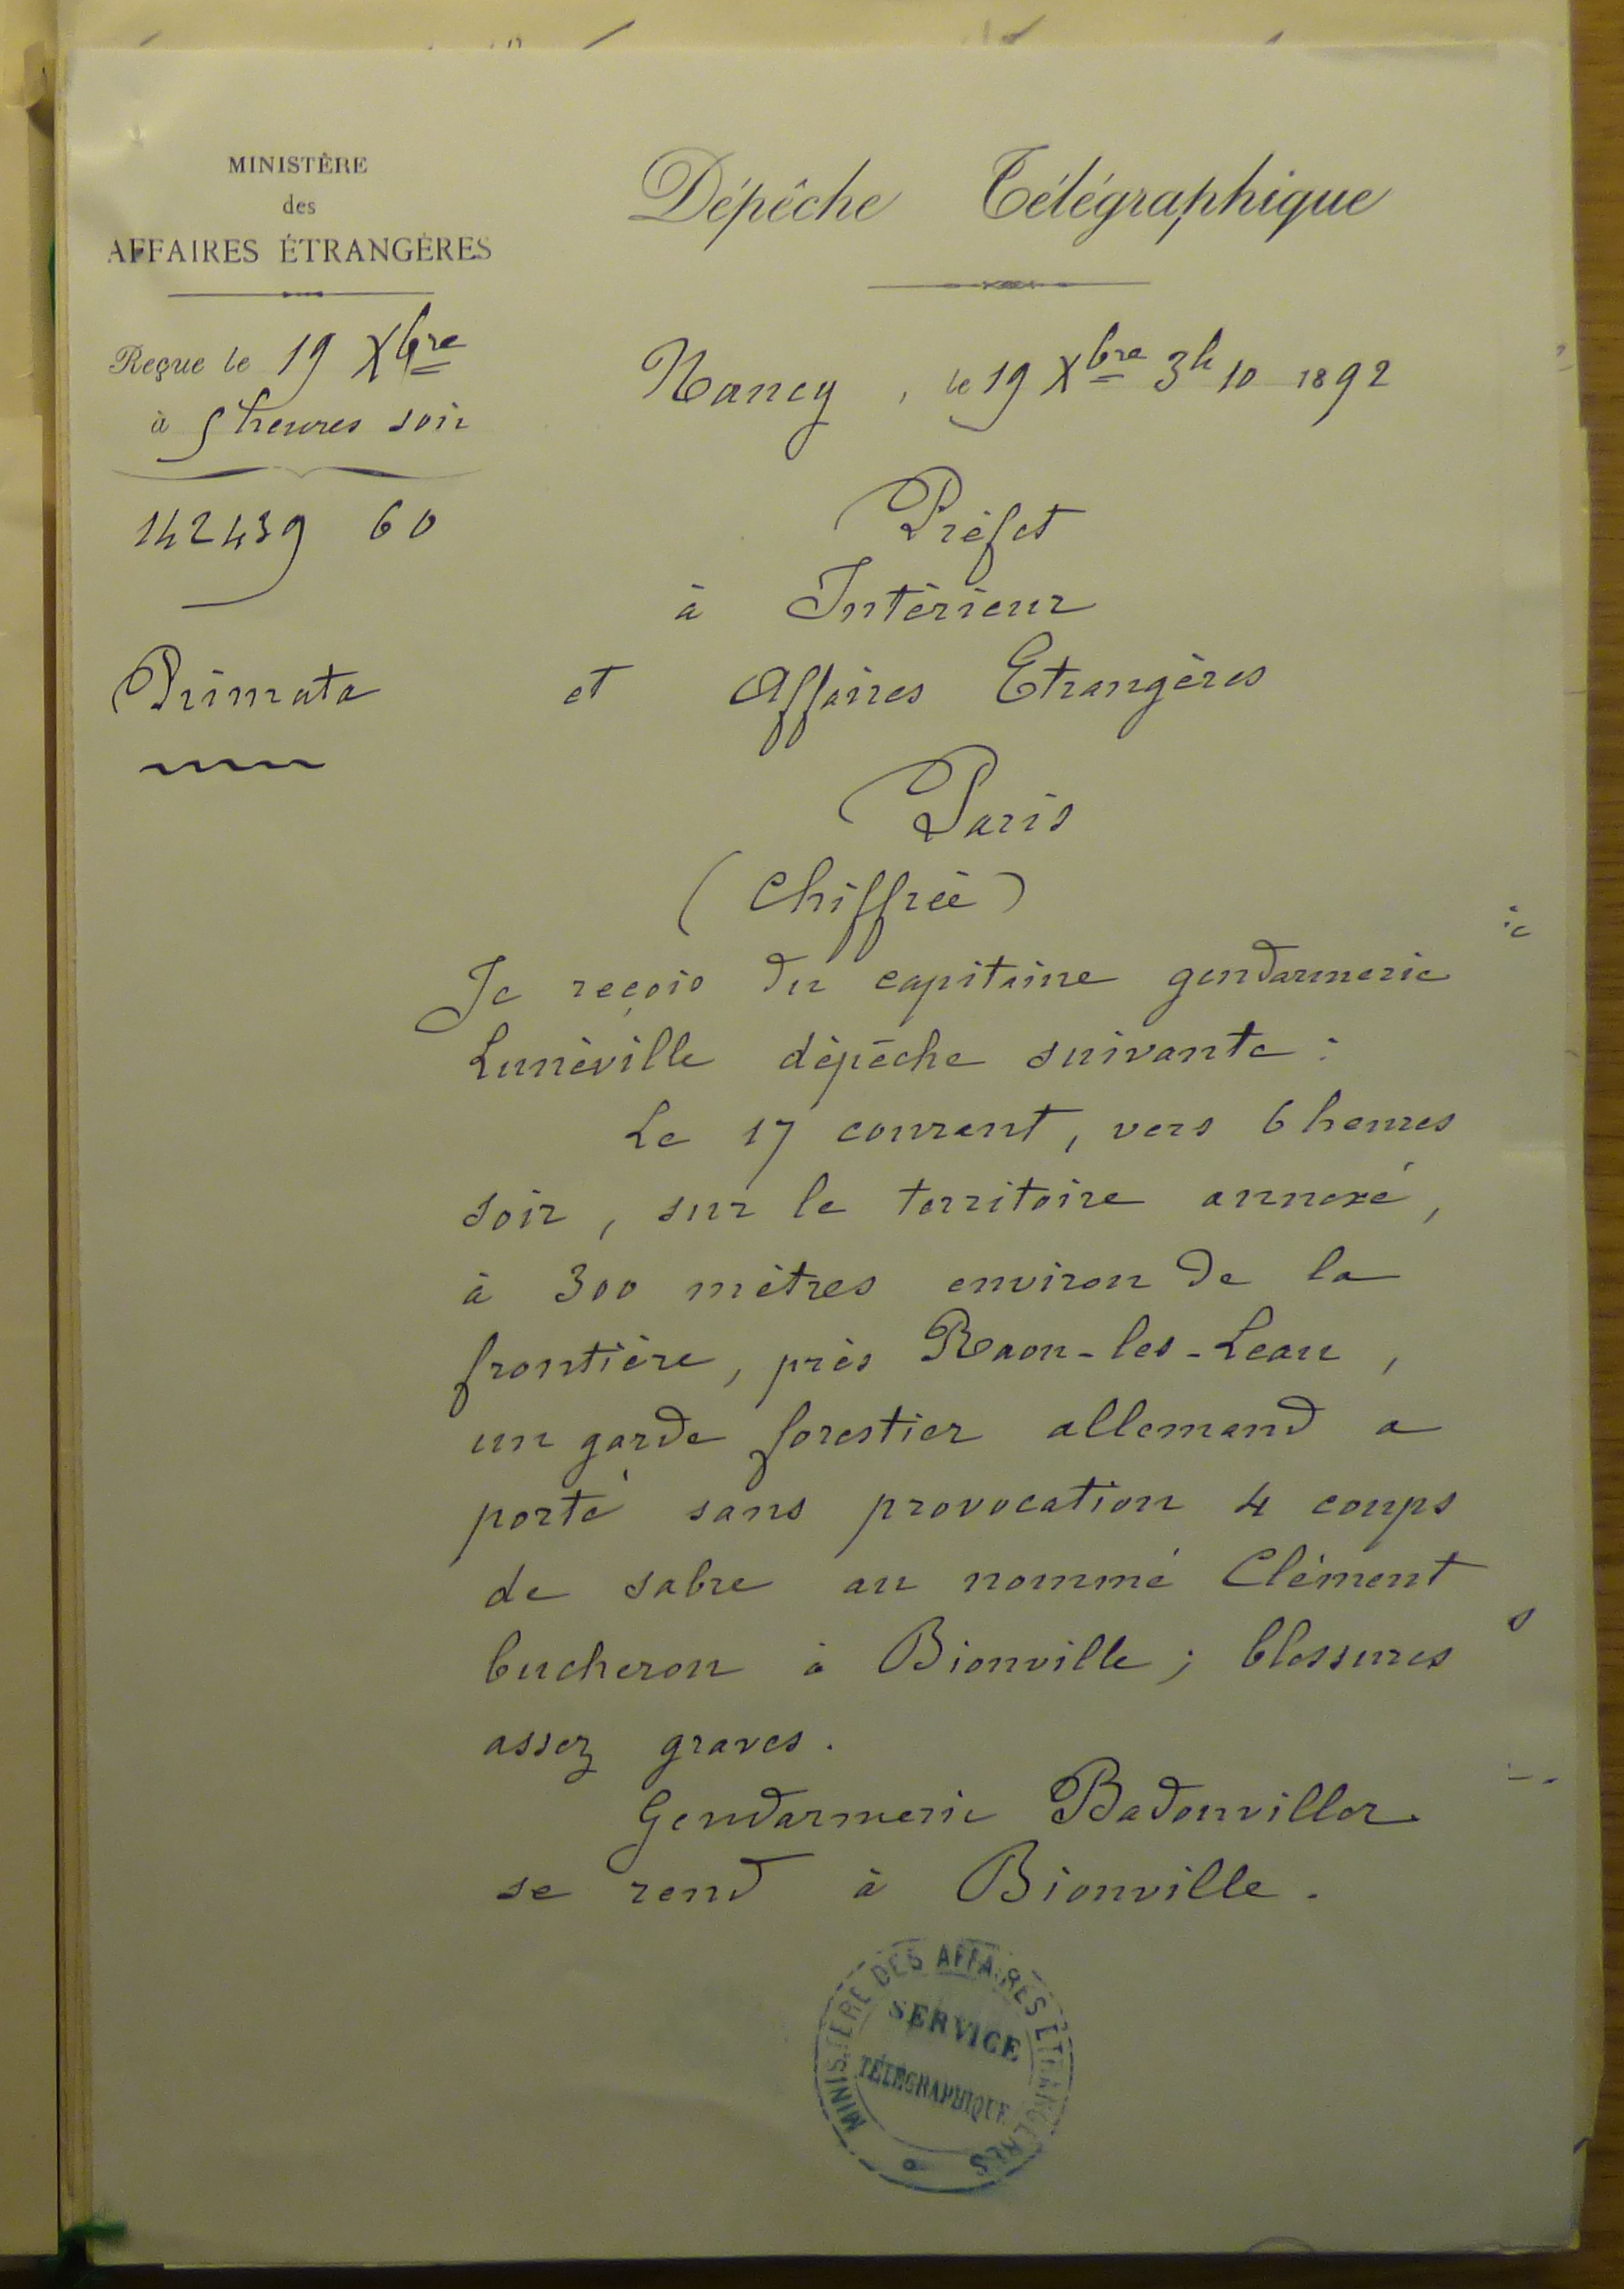 MINISTÈRE
des
AFFAIRES ÉTRANGÈRES
Reçue le 19 Xbre
à 5 heures soir
142439 60
Primata
Dépêche Télégraphique
Nancy, le 19 Xbre 3h 10 1892
Préfet
à Intérieur
et Affaires Etrangères
Paris
(Chiffrée)
Je reçois du capitaine gendarmerie
Lunéville dépêche suivante :
Le 17 courant, vers 6 heures
soir, sur le territoire annexé,
à 300 mètres environ de la
frontière, près Raon-les-Leau,
un garde forestier allemand a
porté sans provocation 4 coups
de sabre au nommé Clément
bucheron à Bionville ; blessures
assez graves.
Gendarmerie Badonviller
se rend à Bionville.
MINISTÈRE DES AFFAIRES ÉTRANGÈRES
SERVICE
TÉLÉGRAPHIQUE